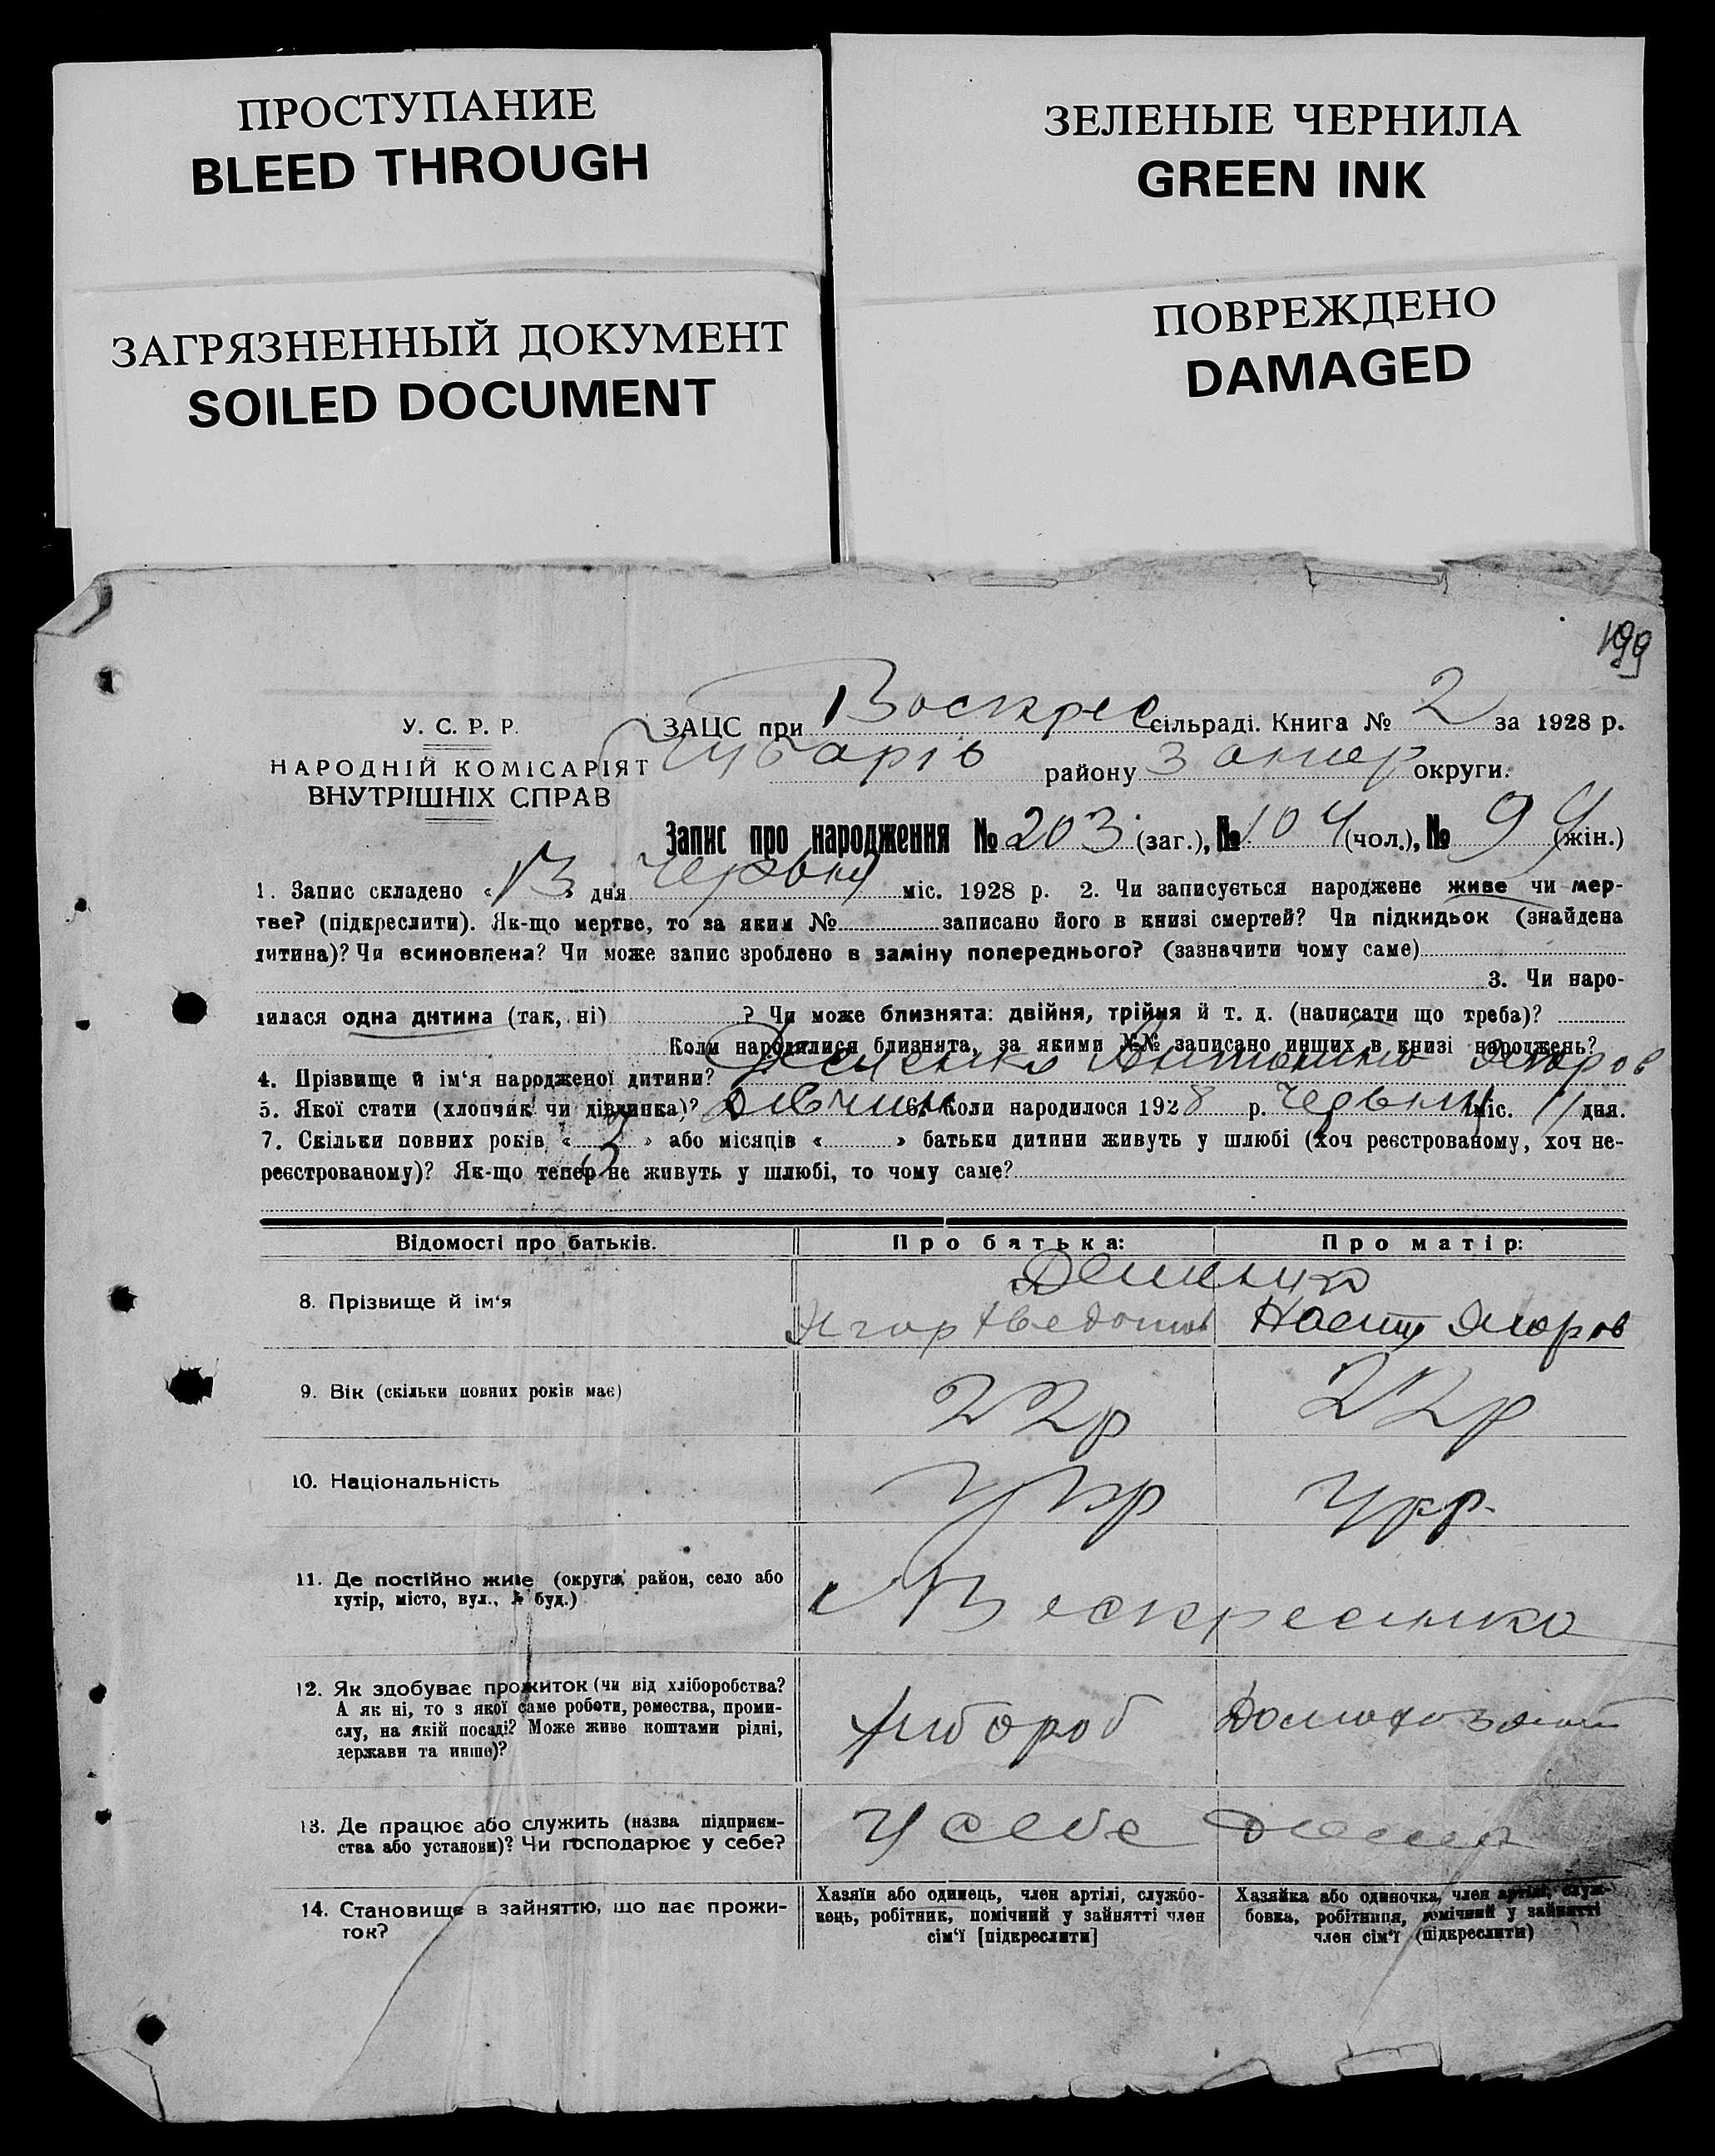 ПРОСТУПАНИЕ
BLEED THROUGH
ЗЕЛЕНЫЕ ЧЕРНИЛА
GREEN INK
ЗАГРЯЗНЕННЫЙ ДОКУМЕНТ
SOILED DOCUMENT
ПОВРЕЖДЕНО
DAMAGED
199
У. С. Р. Р.
НАРОДНІЙ КОМІСАРІЯТ
ВНУТРІШНІХ СПРАВ
ЗАЦС при Воскрес сільраді. Книга № 2 за 1928 р.
Чубарів району Запор округи.
Запис про народження № 203 (заг.), № 104 (чол.), № 99 (жін.)
1. Запис складено « 13 » дня Червня міс. 1928 р. 2. Чи записується народжене живе чи мер-
тве? (підкреслити). Як-що мертве, то за яким № записано його в книзі смертей? Чи підкидьок (знайдена
дитина)? Чи всиновлена? Чи може запис зроблено в заміну попереднього? (зазначити чому саме)
3. Чи наро-
дилася одна дитина (так, ні) ? Чи може близнята: двійня, трійня й т. д. (написати що треба)?
Коли народилися близнята, за якими №№ записано инших в книзі народжень?
4. Прізвище й ім'я народженої дитини? Деменко
5. Якої стати (хлопчик чи дівчинка)? Дівчина 6. Коли народилося 1928 р. Червня міс. 11 дня.
7. Скільки повних років « 2 » або місяців « » батьки дитини живуть у шлюбі (хоч реєстрованому, хоч не-
реєстрованому)? Як-що тепер не живуть у шлюбі, то чому саме?
Відомості про батьків.
Про батька:
Про матір:
8. Прізвище й ім'я
9. Вік (скільки повних років має)
22р
22р
10. Національність
Укр
Укр.
11. Де постійно живе (округа, район, село або
хутір, місто, вул., № буд.)
12. Як здобуває прожиток (чи від хліборобства?
А як ні, то з якої саме роботи, ремества, проми-
слу, на якій посаді? Може живе коштами рідні,
держави та инше)?
13. Де працює або служить (назва підприєм-
ства або установи)? Чи господарює у себе?
У себе дома
14. Становище в зайняттю, що дає прожи-
ток?
Хазяїн або одинець, член артілі, службо-
вець, робітник, помічний у зайнятті член
сім'ї [підкреслити]
Хазяйка або одиночка, член артілі, служ-
бовка, робітниця, помічний у зайнятті
член сім'ї (підкреслити)